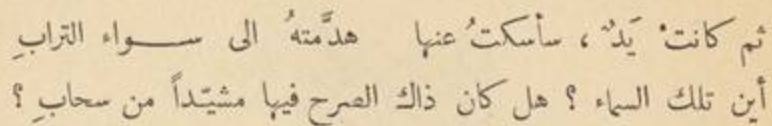 ثم كانتْ يَدٌ ، سأسكتُ عنها هدَّمتهُ الى ســـواء الترابِ
أين تلك السماء ؟ هل كان ذاك الصرح فيها مشيّداً من سحابِ ؟